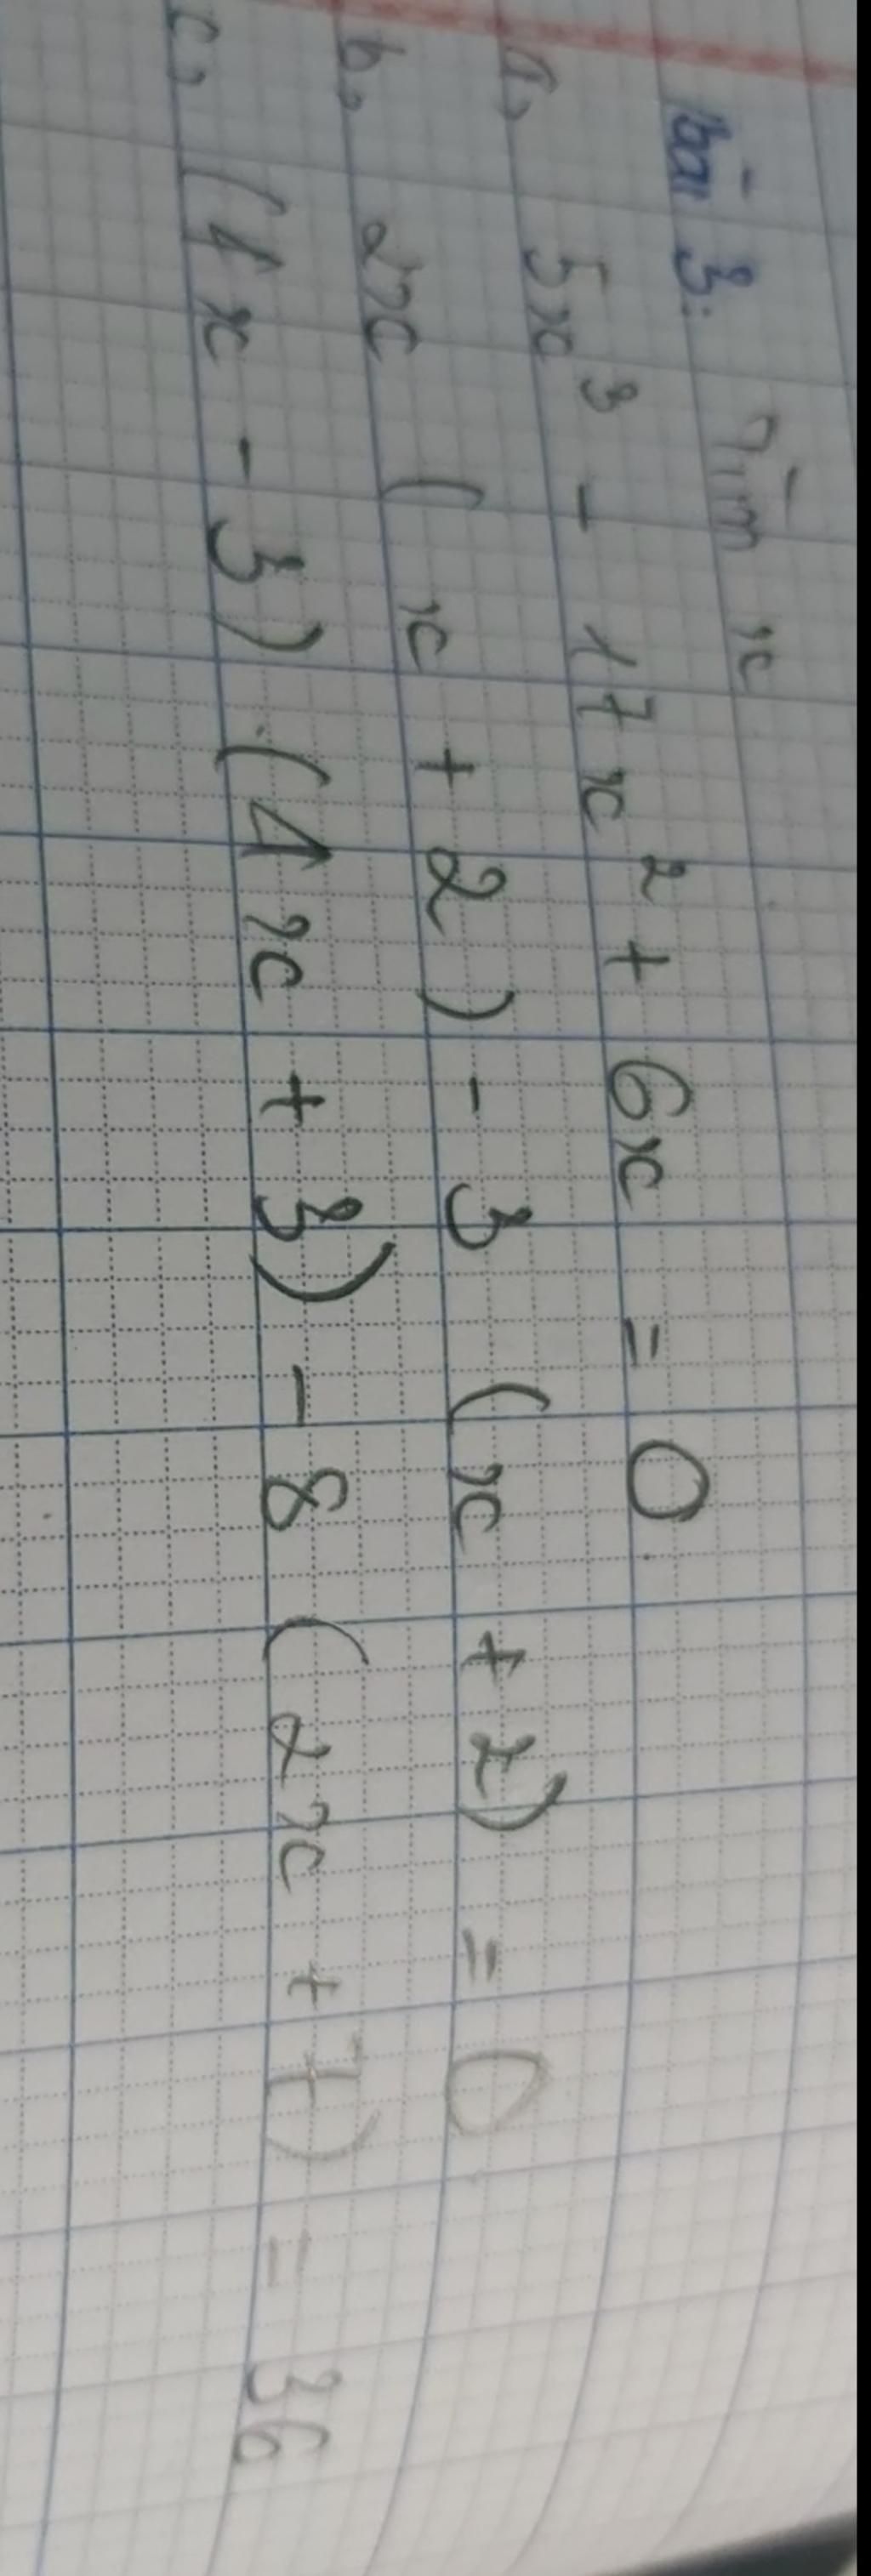 bài 3: Tìm x
a, 5x³ - 17x² + 6x = 0
b, 2x (x + 2) - 3 (x + 2) = 0
c, (4x - 3) (4x + 3) - 8 (2x + 7) = 36